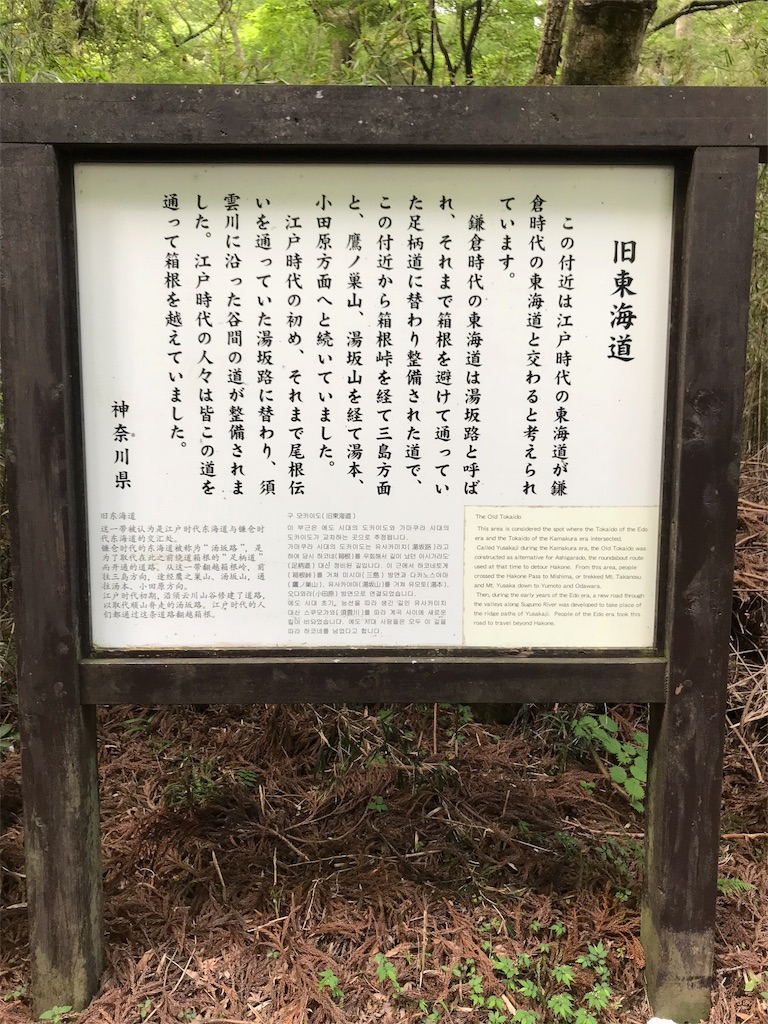 旧東海道
この付近は江戸時代の東海道が鎌
倉時代の東海道と交わると考えられ
ています。
鎌倉時代の東海道は湯坂路と呼ば
れ、それまで箱根を避けて通ってい
た足柄道に替わり整備された道で、
この付近から箱根峠を経て三島方面
と、鷹ノ巣山、湯坂山を経て湯本、
小田原方面へと続いていました。
江戸時代の初め、それまで尾根伝
いを通っていた湯坂路に替わり、須
雲川に沿った谷間の道が整備されま
した。江戸時代の人々は皆この道を
通って箱根を越えていました。
神奈川県
旧东海道
这一带被认为是江户时代东海道与镰仓时
代东海道的交汇处。
镰仓时代的东海道被称为“汤坂路”，是
为了取代在此之前绕道箱根的“足柄道”
而开通的道路。从这一带翻越箱根岭，前
往三岛方向，途经鹰之巢山、汤坂山，通
往汤本、小田原方向。
江户时代初期，沿须云川山谷修建了道路，
以取代顺山脊走的汤坂路。江户时代的人
们都通过这条道路翻越箱根。
구 모카이도(旧東海道)
이 부근은 에도 시대의 도카이도와 가마쿠라 시대의
도카이도가 교차하는 곳으로 추정됩니다.
가마쿠라 시대의 도카이도는 유사카미치(湯坂路)라고
하여 당시 하코네(箱根)를 우회해서 길이 났던 아시가라도
(足柄道) 대신 정비된 길입니다. 이 근에서 하코네토게
(箱根峠)를 거쳐 미시마(三島) 방면과 다카노스야마
(鷹ノ巣山), 유사카야마(湯坂山)를 거쳐 유모토(湯本),
오다와라(小田原) 방면으로 연결되었습니다.
에도 시대 초기, 능선을 따라 생긴 길인 유사카미치
대신 스쿠모가와(須雲川)를 따라 계곡 사이에 새로운
길이 정비되었습니다. 에도 시대 사람들은 모두 이 길을
따라 하코네를 넘었다고 합니다.
The Old Tokaido
This area is considered the spot where the Tokaido of the Edo
era and the Tokaido of the Kamakura era intersected.
Called Yusakaji during the Kamakura era, the Old Tokaido was
constructed as alternative for Ashigarado, the roundabout route
used at that time to detour Hakone. From this area, people
crossed the Hakone Pass to Mishima, or trekked Mt. Takanosu
and Mt. Yusaka down to Yumoto and Odawara.
Then, during the early years of the Edo era, a new road through
the valleys along Sugumo River was developed to take place of
the ridge paths of Yusakaji. People of the Edo era took this
road to travel beyond Hakone.